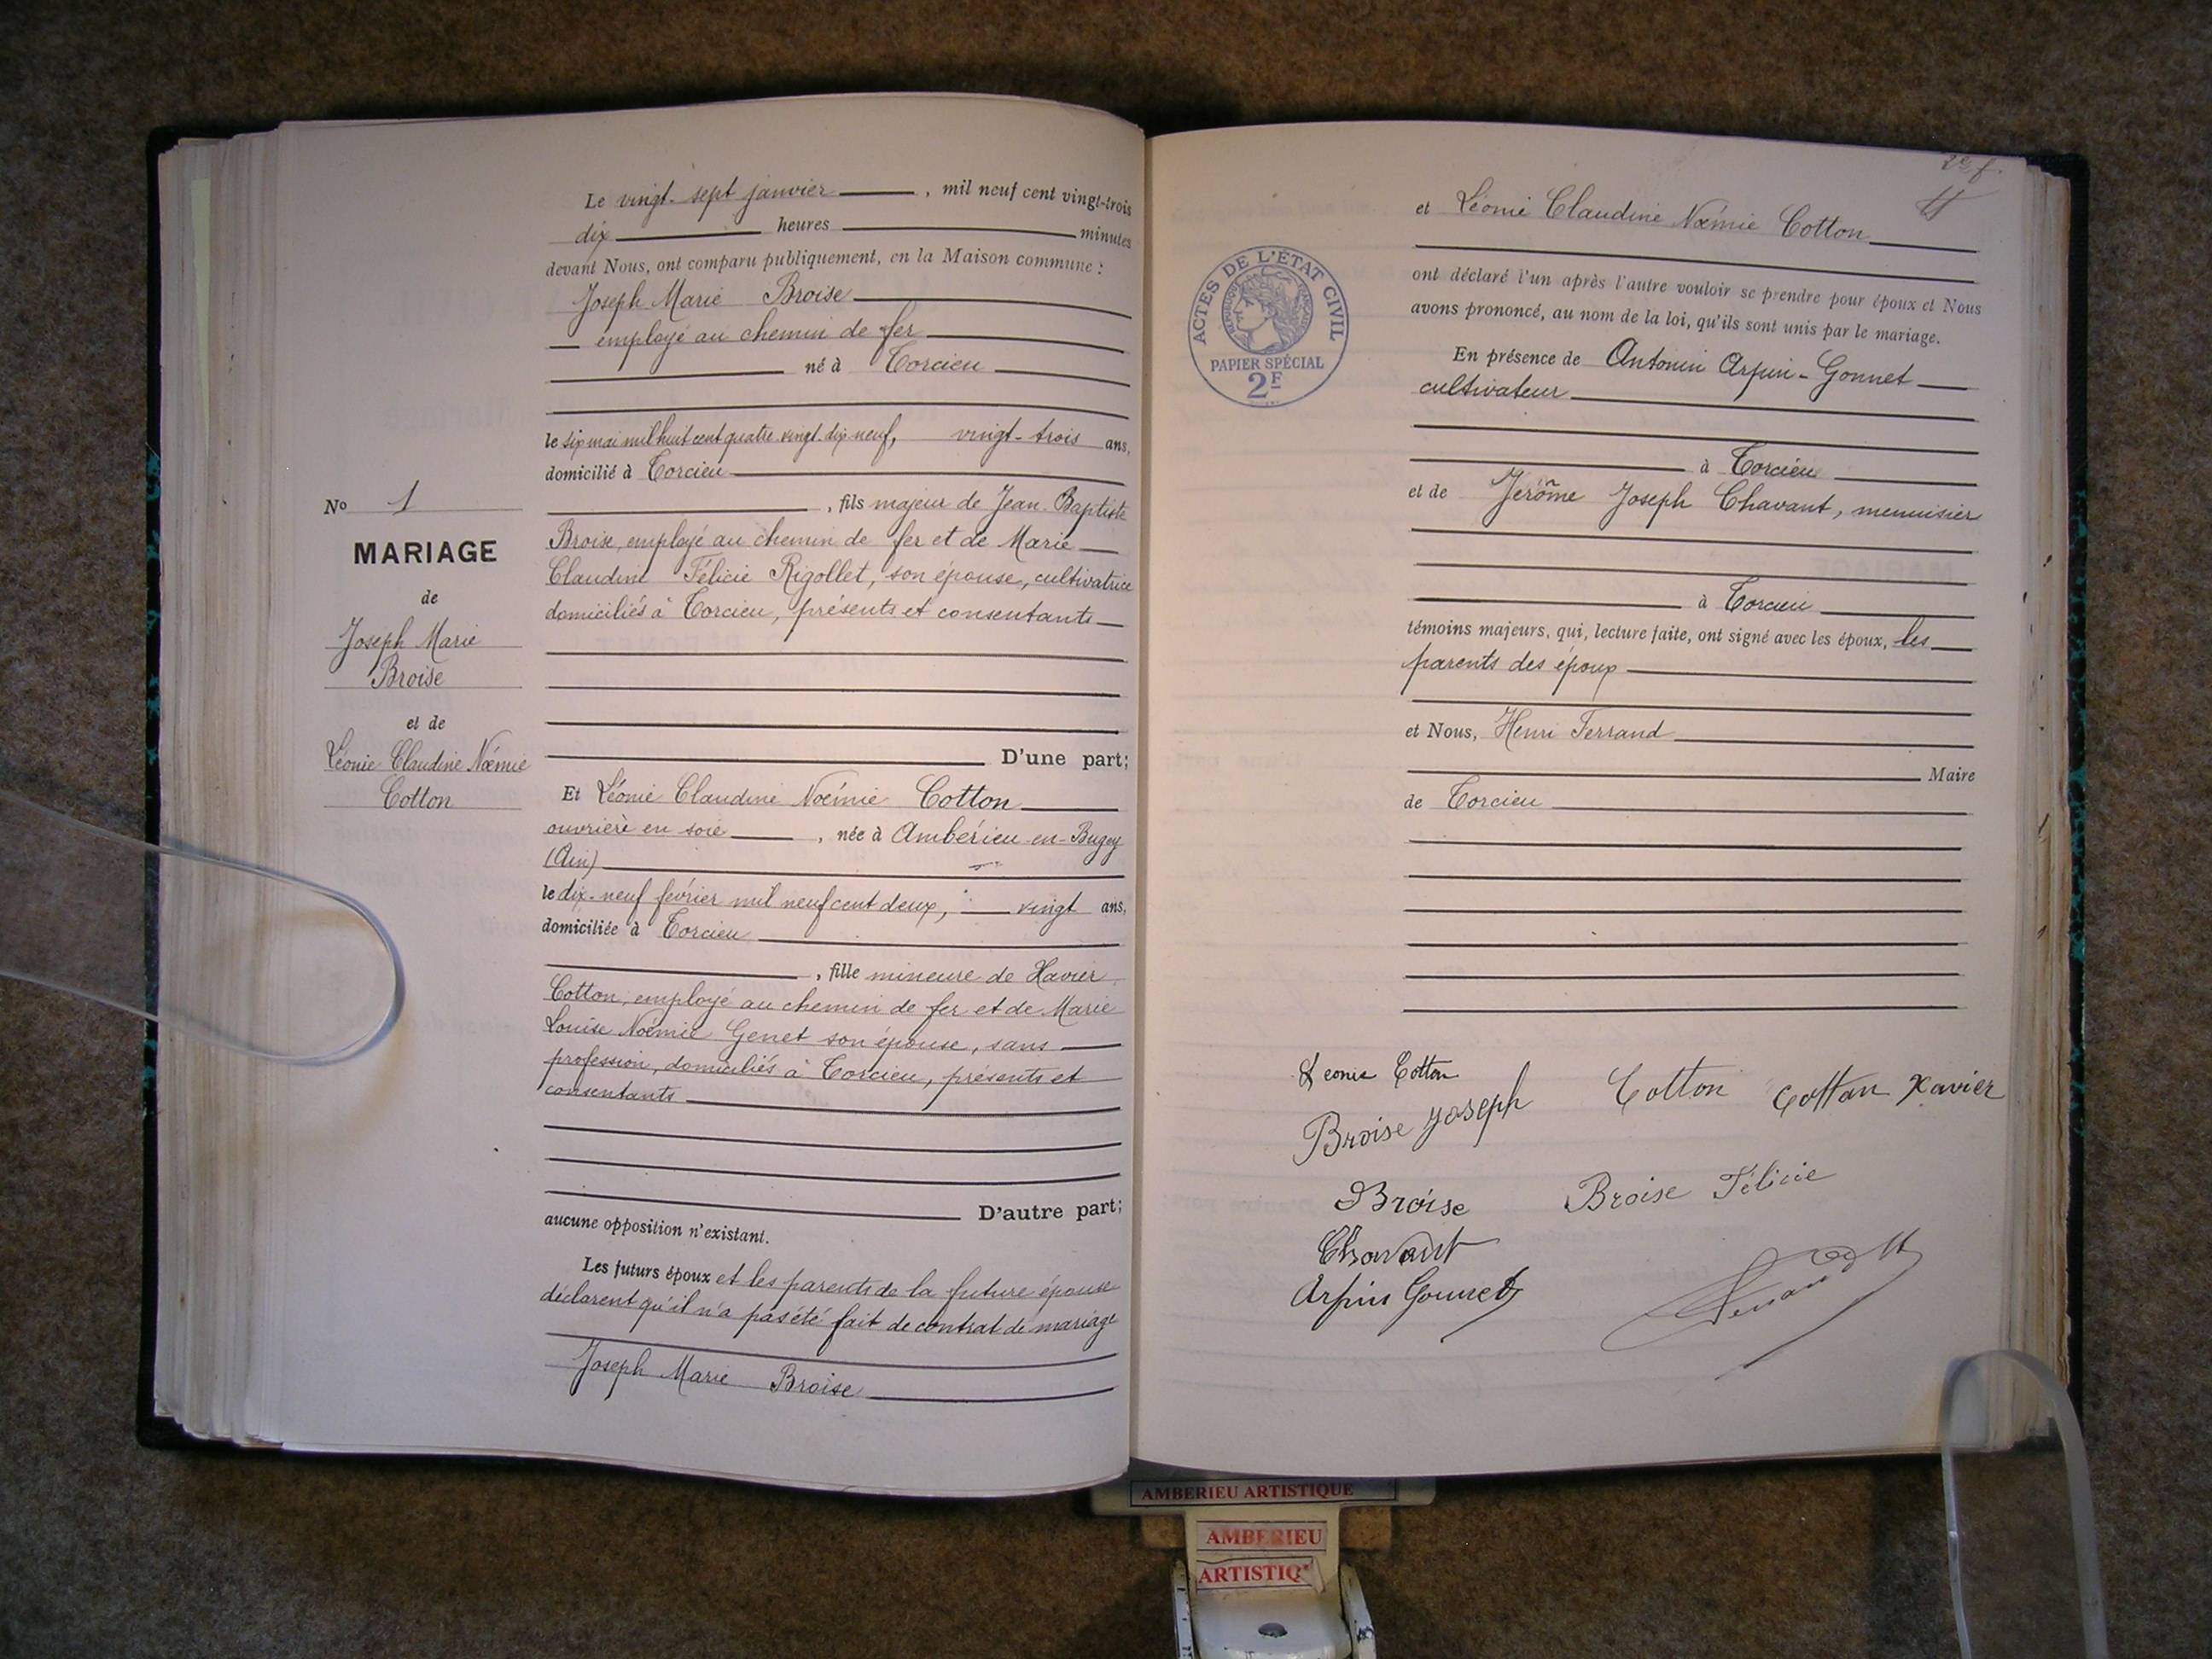 Le vingt-sept janvier, mil neuf cent vingt-trois
dix heures minutes
devant Nous, ont comparu publiquement, en la Maison commune :
Joseph Marie Broise
employé au chemin de fer
né à Torcieu
le six mai mil huit cent quatre vingt dix neuf, vingt-trois ans,
domicilié à Torcieu
No 1
MARIAGE
de
Joseph Marie
Broise
et de
Léonie Claudine Noémie
Cotton
, fils majeur de Jean Baptiste
Broise, employé au chemin de fer et de Marie
Claudine Félicie Rigollet, son épouse, cultivatrice
domiciliés à Torcieu, présents et consentants
D'une part;
Et Léonie Claudine Noémie Cotton
ouvrière en soie, née à Ambérieu-en-Bugey
(Ain)
le dix-neuf février mil neuf cent deux, vingt ans,
domiciliée à Torcieu
, fille mineure de Xavier
Cotton, employé au chemin de fer et de Marie
Louise Noémie Genet son épouse, sans
profession, domiciliés à Torcieu, présents et
consentants
D'autre part;
aucune opposition n'existant.
Les futurs époux et les parents de la future épouse
déclarent qu'il n'a pas été fait de contrat de mariage
Joseph Marie Broise
2e f.
et Léonie Claudine Noémie Cotton
ont déclaré l'un après l'autre vouloir se prendre pour époux et Nous
avons prononcé, au nom de la loi, qu'ils sont unis par le mariage.
ACTES DE L'ÉTAT CIVIL
RÉPUBLIQUE FRANÇAISE
PAPIER SPÉCIAL
2F
En présence de Antonin Arpin-Gonnet
cultivateur
à Torcieu
et de Jérôme Joseph Chavant, menuisier
à Torcieu
témoins majeurs, qui, lecture faite, ont signé avec les époux, les
parents des époux
et Nous, Henri Ferrand
Maire
de Torcieu
Leonie Cotton
Broise Joseph Cotton Cottan Xavier
Broise Broise Félicie
Chavant
Arpin Gonnet Ferrand
AMBERIEU ARTISTIQUE
AMBERIEU
ARTISTIQ